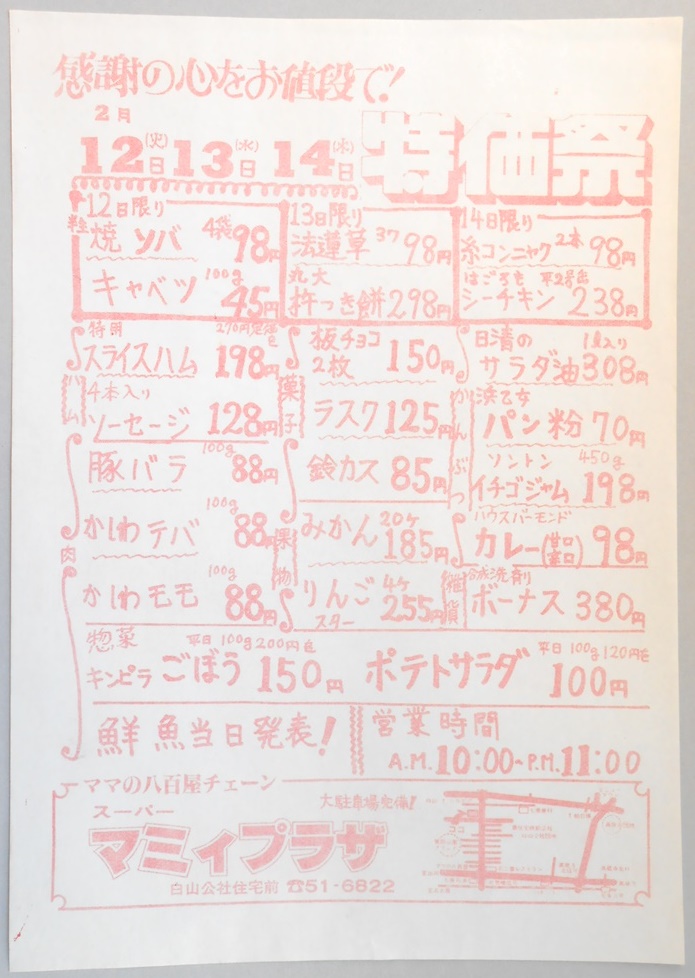 感謝の心をお値段で!
2月
12日(火) 13日(水) 14日(木)
特価祭
12日限り
生
焼ソバ 4袋 98円
キャベツ 100g 45円
13日限り
法蓮草 3ワ 98円
丸大
杵つき餅 298円
14日限り
糸コンニャク 2本 98円
はごろも 平2号缶
シーチキン 238円
ハム
特用 270円定価を
スライスハム 198円
4本入り
ソーセージ 128円
肉
豚バラ 100g 88円
かしわテバ 100g 88円
かしわモモ 100g 88円
菓子
板チョコ
2枚 150円
ラスク 125円
鈴カス 85円
果物
みかん 20ケ 185円
りんご 4ケ
スター 255円
かんぶつ
日清の 1l入り
サラダ油 308円
浜乙女
パン粉 70円
ソントン 450g
イチゴジャム 198円
ハウスバーモンド
カレー(甘口 辛口) 98円
雑貨
合成洗剤
ボーナス 380円
惣菜
平日100g200円を
キンピラごぼう 150円
平日100g120円を
ポテトサラダ 100円
鮮魚当日発表!
営業時間
A.M.10:00~P.M.11:00
ママの八百屋チェーン
スーパー
大駐車場完備!
マミィプラザ
白山公社住宅前 ☎51-6822
ココ